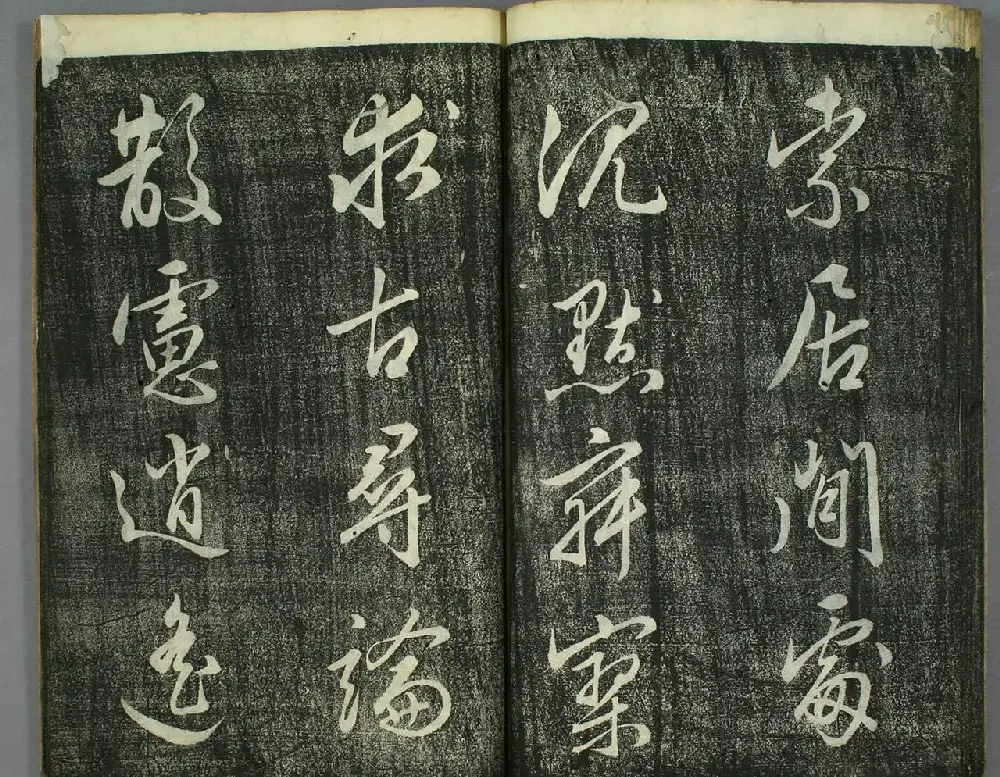 索居閒處
沉默寂寥
求古尋論
散慮逍遙